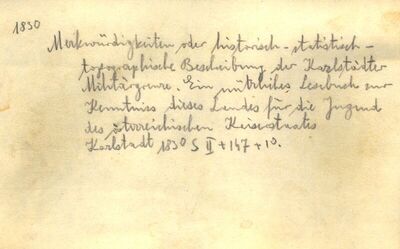 1830
Merkwürdigkeiten oder historisch-statistisch-
topographische Bescheibung der Karlstädter
Militärgrenze. Ein nützliches Lesebuch zur
Kenntniss dieses Landes für die Jugend
des österreichischen Keiserstaates
Karlstadt 1830 S II + 147 + 10.